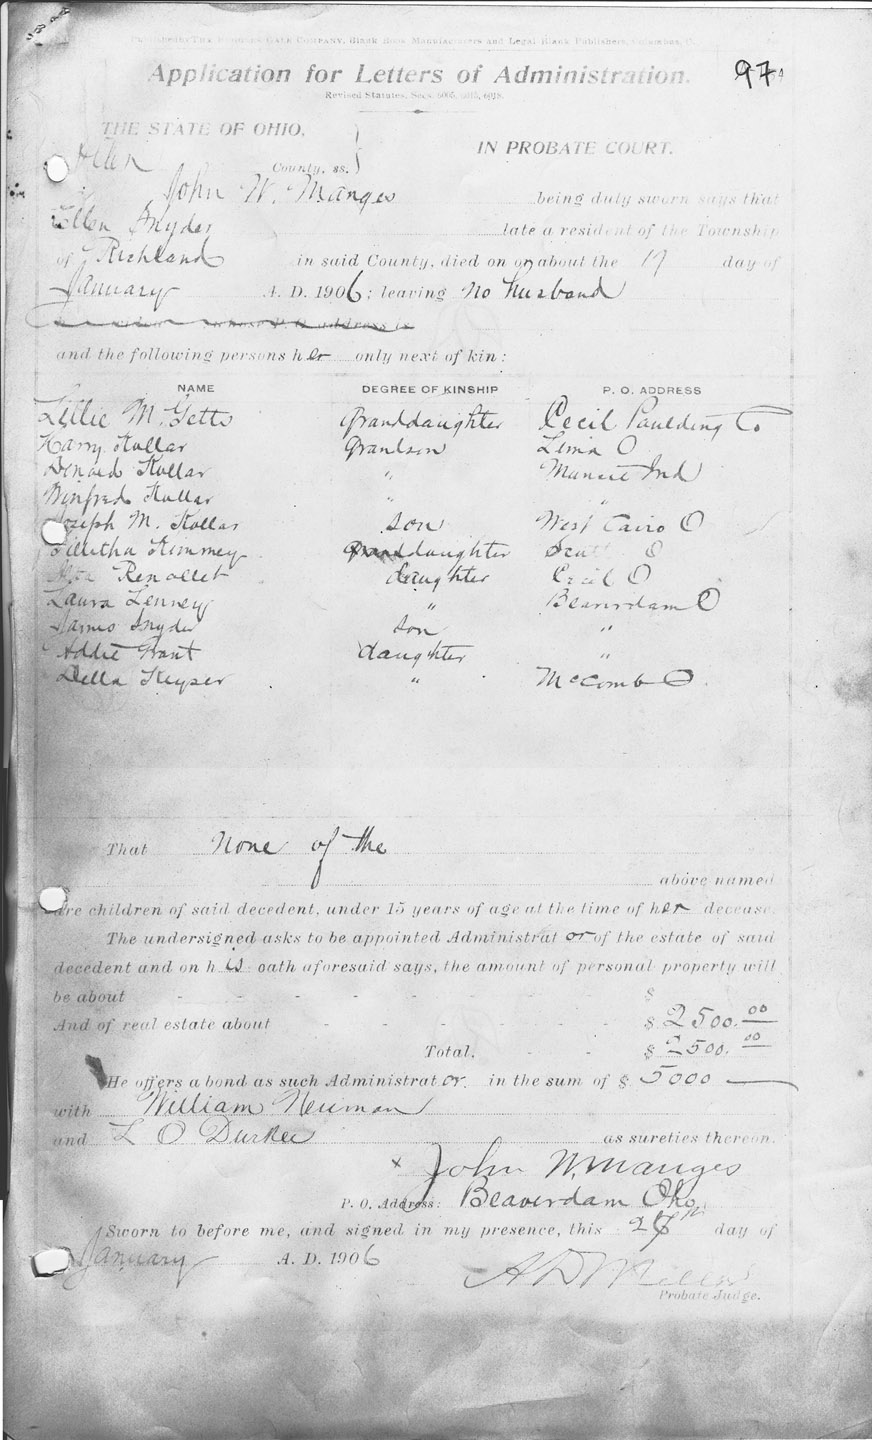 Published by The COMPANY, Blank Book Manufacturers and Legal Blank Publishers, Columbus, O.
Application for Letters of Administration.
97
Revised Statutes, Secs. 6005,
THE STATE OF OHIO,
Allen County, ss.
IN PROBATE COURT.
John W. Manges being duly sworn says that
Ellen Snyder late a resident of the Township
of Richland in said County, died on or about the 17 day of
January A. D. 1906; leaving no husband
and the following persons her only next of kin:
NAME DEGREE OF KINSHIP P. O. ADDRESS
Lillie M. Getts granddaughter Cecil Paulding Co
Harry Kollar Grandson Lima O
Kollar " Muncie Ind
Winfred Kollar " "
Joseph M. Kollar son West Cairo O
Kimmey daughter O
Renollet daughter Cecil O
Laura Lenney " Beaverdam O
James Snyder son "
Addie Grant daughter "
Della Keyser " McComb O
That None of the
above named
are children of said decedent, under 15 years of age at the time of her decease.
The undersigned asks to be appointed Administrator of the estate of said
decedent and on his oath aforesaid says, the amount of personal property will
be about - - - - - - - $
And of real estate about - - - - - $ 2500.00
Total, - - $ 2500.00
He offers a bond as such Administrator in the sum of $ 5000
with William Neuman
and L O Durkee as sureties thereon.
x John W. Manges
P. O. Address: Beaverdam Ohio
Sworn to before me, and signed in my presence, this day of
January A. D. 1906
Probate Judge.